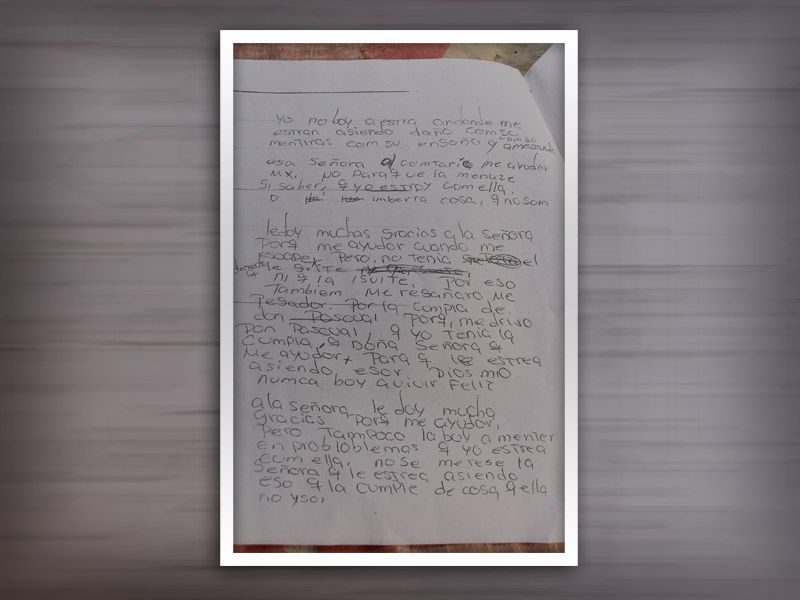 yo no boy a estra andonde me
estran asiendo daño com su
mentiras com su ensaño y
esa señora al comtario me ayudor
mx, no para q ue la menaze
si saber, q yo estroy com ella.
o imberta cosa, q no som
le doy muchas gracias a la señora
porq me ayudor cuando me
escape, pero. no tenia el
q ite
ni q la isuite, por eso
tambiem me resañaro me
pesador. por la cumpla de.
don Pascual porq, me drijo
Don Pascual, q yo tenia la
cumpla, q Doña Señora q
me ayudor, para q le estrea
asiendo, esor, Dios mio.
numca boy a vivir feliz
a la señora, le doy mucha
gracias porq me ayudor,
pero tampoco la boy a menter
en probloblemas q yo estrea
com ella, no se merese la
señora q le estrea asiendo
eso q la cumple de cosa q ella
no yso,